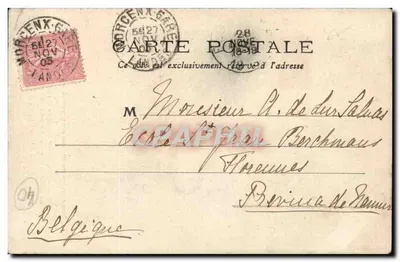 MORCENX-GARE
5E 27
NOV
03
LANDES
MORCENX-GARE
5E 27
NOV
03
LANDES
28
CARTE POSTALE
Ce côté est exclusivement réservé à l'adresse
M Monsieur A. de Lur Saluces
Ecole St Jean Berchmans
Florennes
Province de Namur
Belgique
40